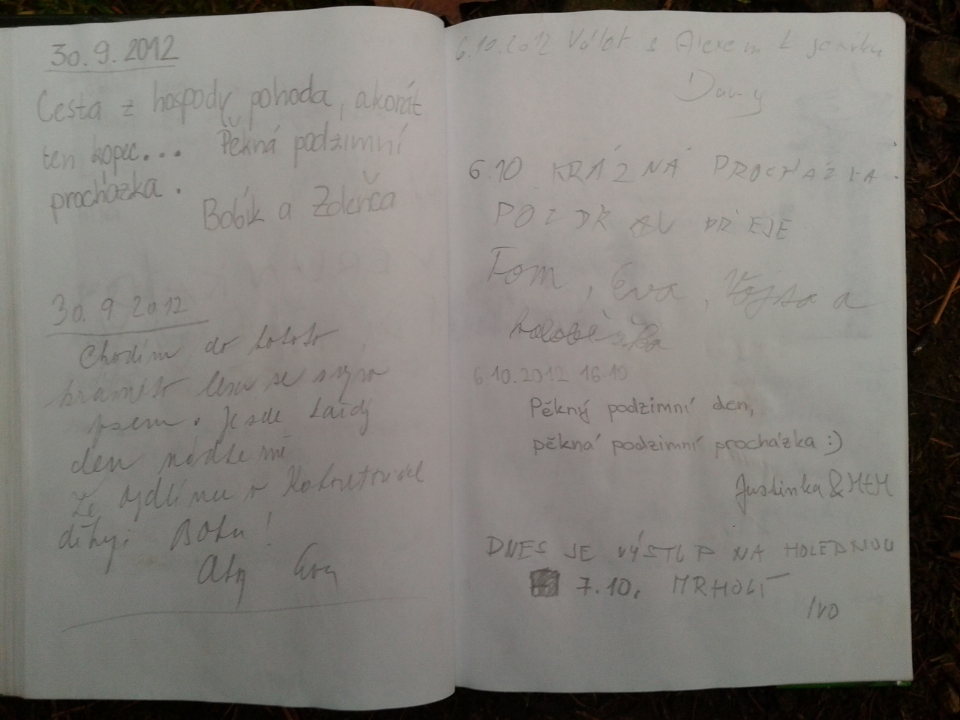 30.9.2012
Cesta z hospody pohoda, akorát
ten kopec... Pěkná podzimní
procházka.
Bobík a Zdenča
30.9 2012
Chodím do tohoto
lesa se svým
psem. Je zde každý
den nádherně
že bydlíme v Kohoutovicích
díky. Bohu!
6.10.2012 Výlet s Alexem k jezírku
6.10 KRÁZNÁ PROCHÁZKA.
POZDRAV PŘEJE
Tom, Eva, Vojta a
6.10.2012 16:10
Pěkný podzimní den,
pěkná podzimní procházka :)
Justinka & MEM
DNES JE VÝSTUP NA HOLEDNOU
7.10, MRHOLÍ
IVO